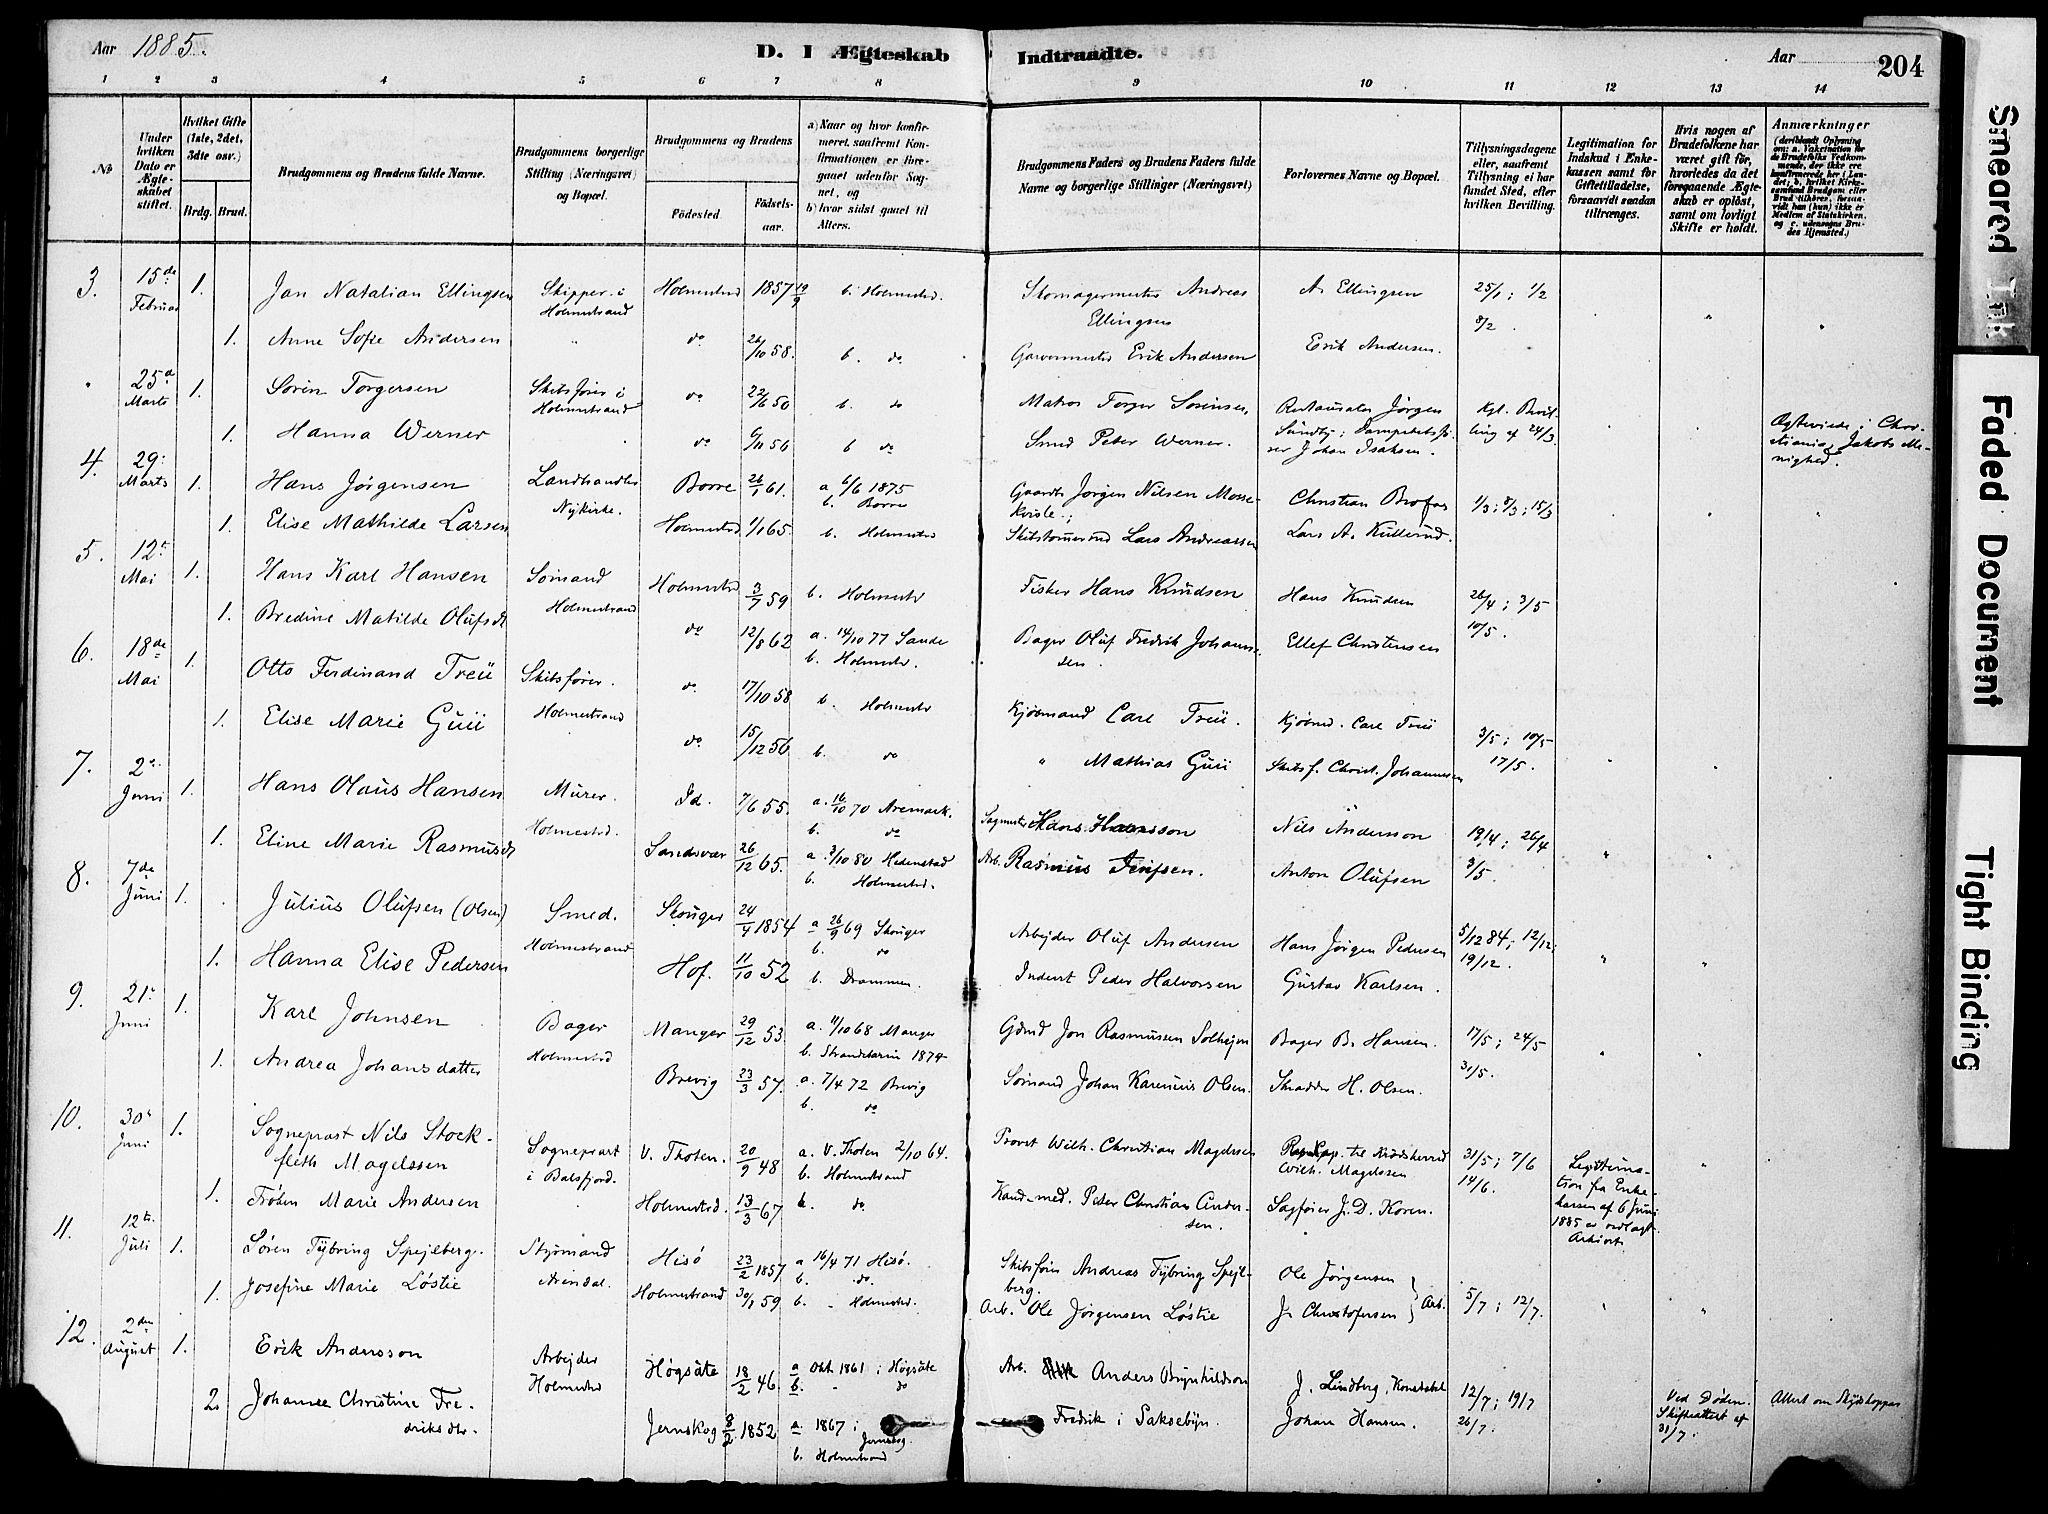 Aar 1885.
D. I Ægteskab Indtraadte.
Aar 204
1 2 3 4 5 6 7 8 9 10 11 12 13 14
No
Under hvilken Dato er Ægteskabet stiftet.
Hvilket Gifte (1ste, 2det, 3die osv.)
Brdg. Brud.
Brudgommens og Brudens fulde Navne.
Brudgommens borgerlige Stilling (Næringsvei) og Bopæl.
Brudgommens og Brudens
Födested. Födsels-aar.
a) Naar og hvor konfirmeret, saafremt Konfirmationen er foregaaet udenfor Sognet, og
b) hvor sidst gaaet til Alters.
Brudgommens Faders og Brudens Faders fulde Navne og borgerlige Stillinger (Næringsvei)
Forlovernes Navne og Bopæl.
Tillysningsdagene eller, saafremt Tillysning ei har fundet Sted, efter hvilken Bevilling.
Legitimation for Indskud i Enkekassen samt for Giftetilladelse, forsaavidt saadan tiltrænges.
Hvis nogen af Brudefolkene har været gift før, hvorledes da det foregaaende Ægteskab er oplöst, samt om lovligt Skifte er holdt.
Anmærkninger
3. 15de Februar 1. Jan Natalian Ellingsen Skipper i Holmestrand Holmestrd 1857 19/9 b. Holmestrd. Skomagermester Andreas Ellingsen A. Ellingsen 25/1; 1/2 8/2.
1. Anne Sofie Andersen " do 26/10 58. b. do Garvermester Erik Andersen Erik Andersen.
" 25de Marts 1. Sören Torgersen Skibsfører i Holmestrand do 22/6 50 b. do Matros Torger Sørensen, Restauratør Jørgen Kgl. Bevilling af 24/3 Ægteviede i Christiania, Jakobs Menighed.
1. Hanna Werner do 6/11 56 b do Smed Peter Werner. Sundby; Dampskibsfører Johan Isaksen.
4. 29. Marts 1. Hans Jørgensen Landhandler Nykirke. Borre 26/1 61. a 6/6 1875 b. Borre Gaardb. Jørgen Nilsen Mossekvisle; Christian Brofos 1/3; 8/3; 15/3
1. Elise Mathilde Larsen Holmestrd 1/1 65. b. Holmestrd Skibstømrmnd Lars Andreassen Lars A. Kullerud.
5. 12te Mai 1. Hans Karl Hansen Sømand Holmestrand Holmestrd 3/7 59 b. Holmestr Fisker Hans Knudsen Hans Knudsen 26/4; 3/5 10/5.
1. Bredine Matilde Olufsdt do 12/8 62 a. 14/10 77 Sande b. Holmestr. Bager Oluf Fredrik Johannesen. Ellef Christensen
6. 18de Mai 1. Otto Ferdinand Treü Skibsfører. Holmestrand do 17/10 58 b. Holmestr Kjøbmand Carl Treü. Kjøbmd. Carl Treü 3/5; 10/5 17/5.
1. Elise Marie Guii do 15/12 56 b. do " Mathias Guii Skibsf. Christ. Johannesen
7. 2den Juni 1. Hans Olaus Hansen Murer. Holmestrd. Id. 7/6 55. a. 16/10 70 Aremark. b. do Sagmester Hans Hansson Nils Andersson 19/4; 26/4 3/5.
1. Eline Marie Rasmusdt Sandsvær 26/12 65. a 3/10 80 Hedenstad b. Holmestrd. Arb. Rasmus Jensen. Anton Olufsen
8. 7de Juni 1. Julius Olufsen (Olsen) Smed. Holmestrand Skouger 24/4 1854 a 26/9 69 Skouger b. do Arbeider Oluf Andersen Hans Jørgen Pedersen 5/12 84; 12/12; 19/12.
1. Hanna Elise Pedersen Hof. 11/10 52 b. Drammen. Inderst Peder Halvorsen Gustav Karlsen.
9. 21. Juni 1. Karl Johnsen Bager Holmestrd Manger 29/12 53 a. 11/10 68 Manger b. Strandebarm 1874 Gdmd Jon Rasmussen Solheim Bager B. Hansen. 17/5; 24/5 31/5.
1. Andrea Johansdatter Brevig 23/3 57. a. 7/4 72 Brevig b. do Sømand Johan Karenius Olsen. Skrædder H. Olsen.
10. 30. Juni 1. Sognepræst Nils Stockfleth Magelssen Sogneprest i Balsfjord. V. Thoten. 20/9 48 a. V. Thoten 2/10 64. b. Holmestrand Provst Wilh. Christian Magelssen til Wilh. Magelssen 31/5; 7/6 14/6. Legitimation fra Enkekassen af 6 Juni 1885 er vedlagt Arkivet.
1. Frøken Marie Andersen Holmestrd. 13/3 67 b. do. Kand. med. Peter Christian Andersen. Sagfører J. D. Koren.
11. 12te Juli 1. Søren Tybring Spejlberg. Styrmand Arendal. Hisö 23/2 1857 a 16/4 71 Hisö. b. do. Skibsfører Andreas Tybring Spejlberg. Ole Jørgensen 5/7; 12/7.
1. Josefine Marie Løstie Holmestrand 30/8 59 b. Holmestrd. Arb. Ole Jørgensen Løstie J. Christofersen Arb.
12. 2den August 1. Erik Andersson Arbejder Holmestrd Høgsäte 18/2 46 a Okt. 1861 i Høgsäte b. do Arb. Anders Brynhildson J. Lindberg, Konstabel 12/7; 19/7 26/7. Ved Døden. Skifteattest af 31/7. Attest om Skydskopper
2. Johanne Christine Fredriksdtr. Jernskog 8/2 1852 a 1867 i Jernskog. b. Holmestrand Fredrik i Saksebyn. Johan Hansen.
Smeared Ink
Faded Document
Tight Binding